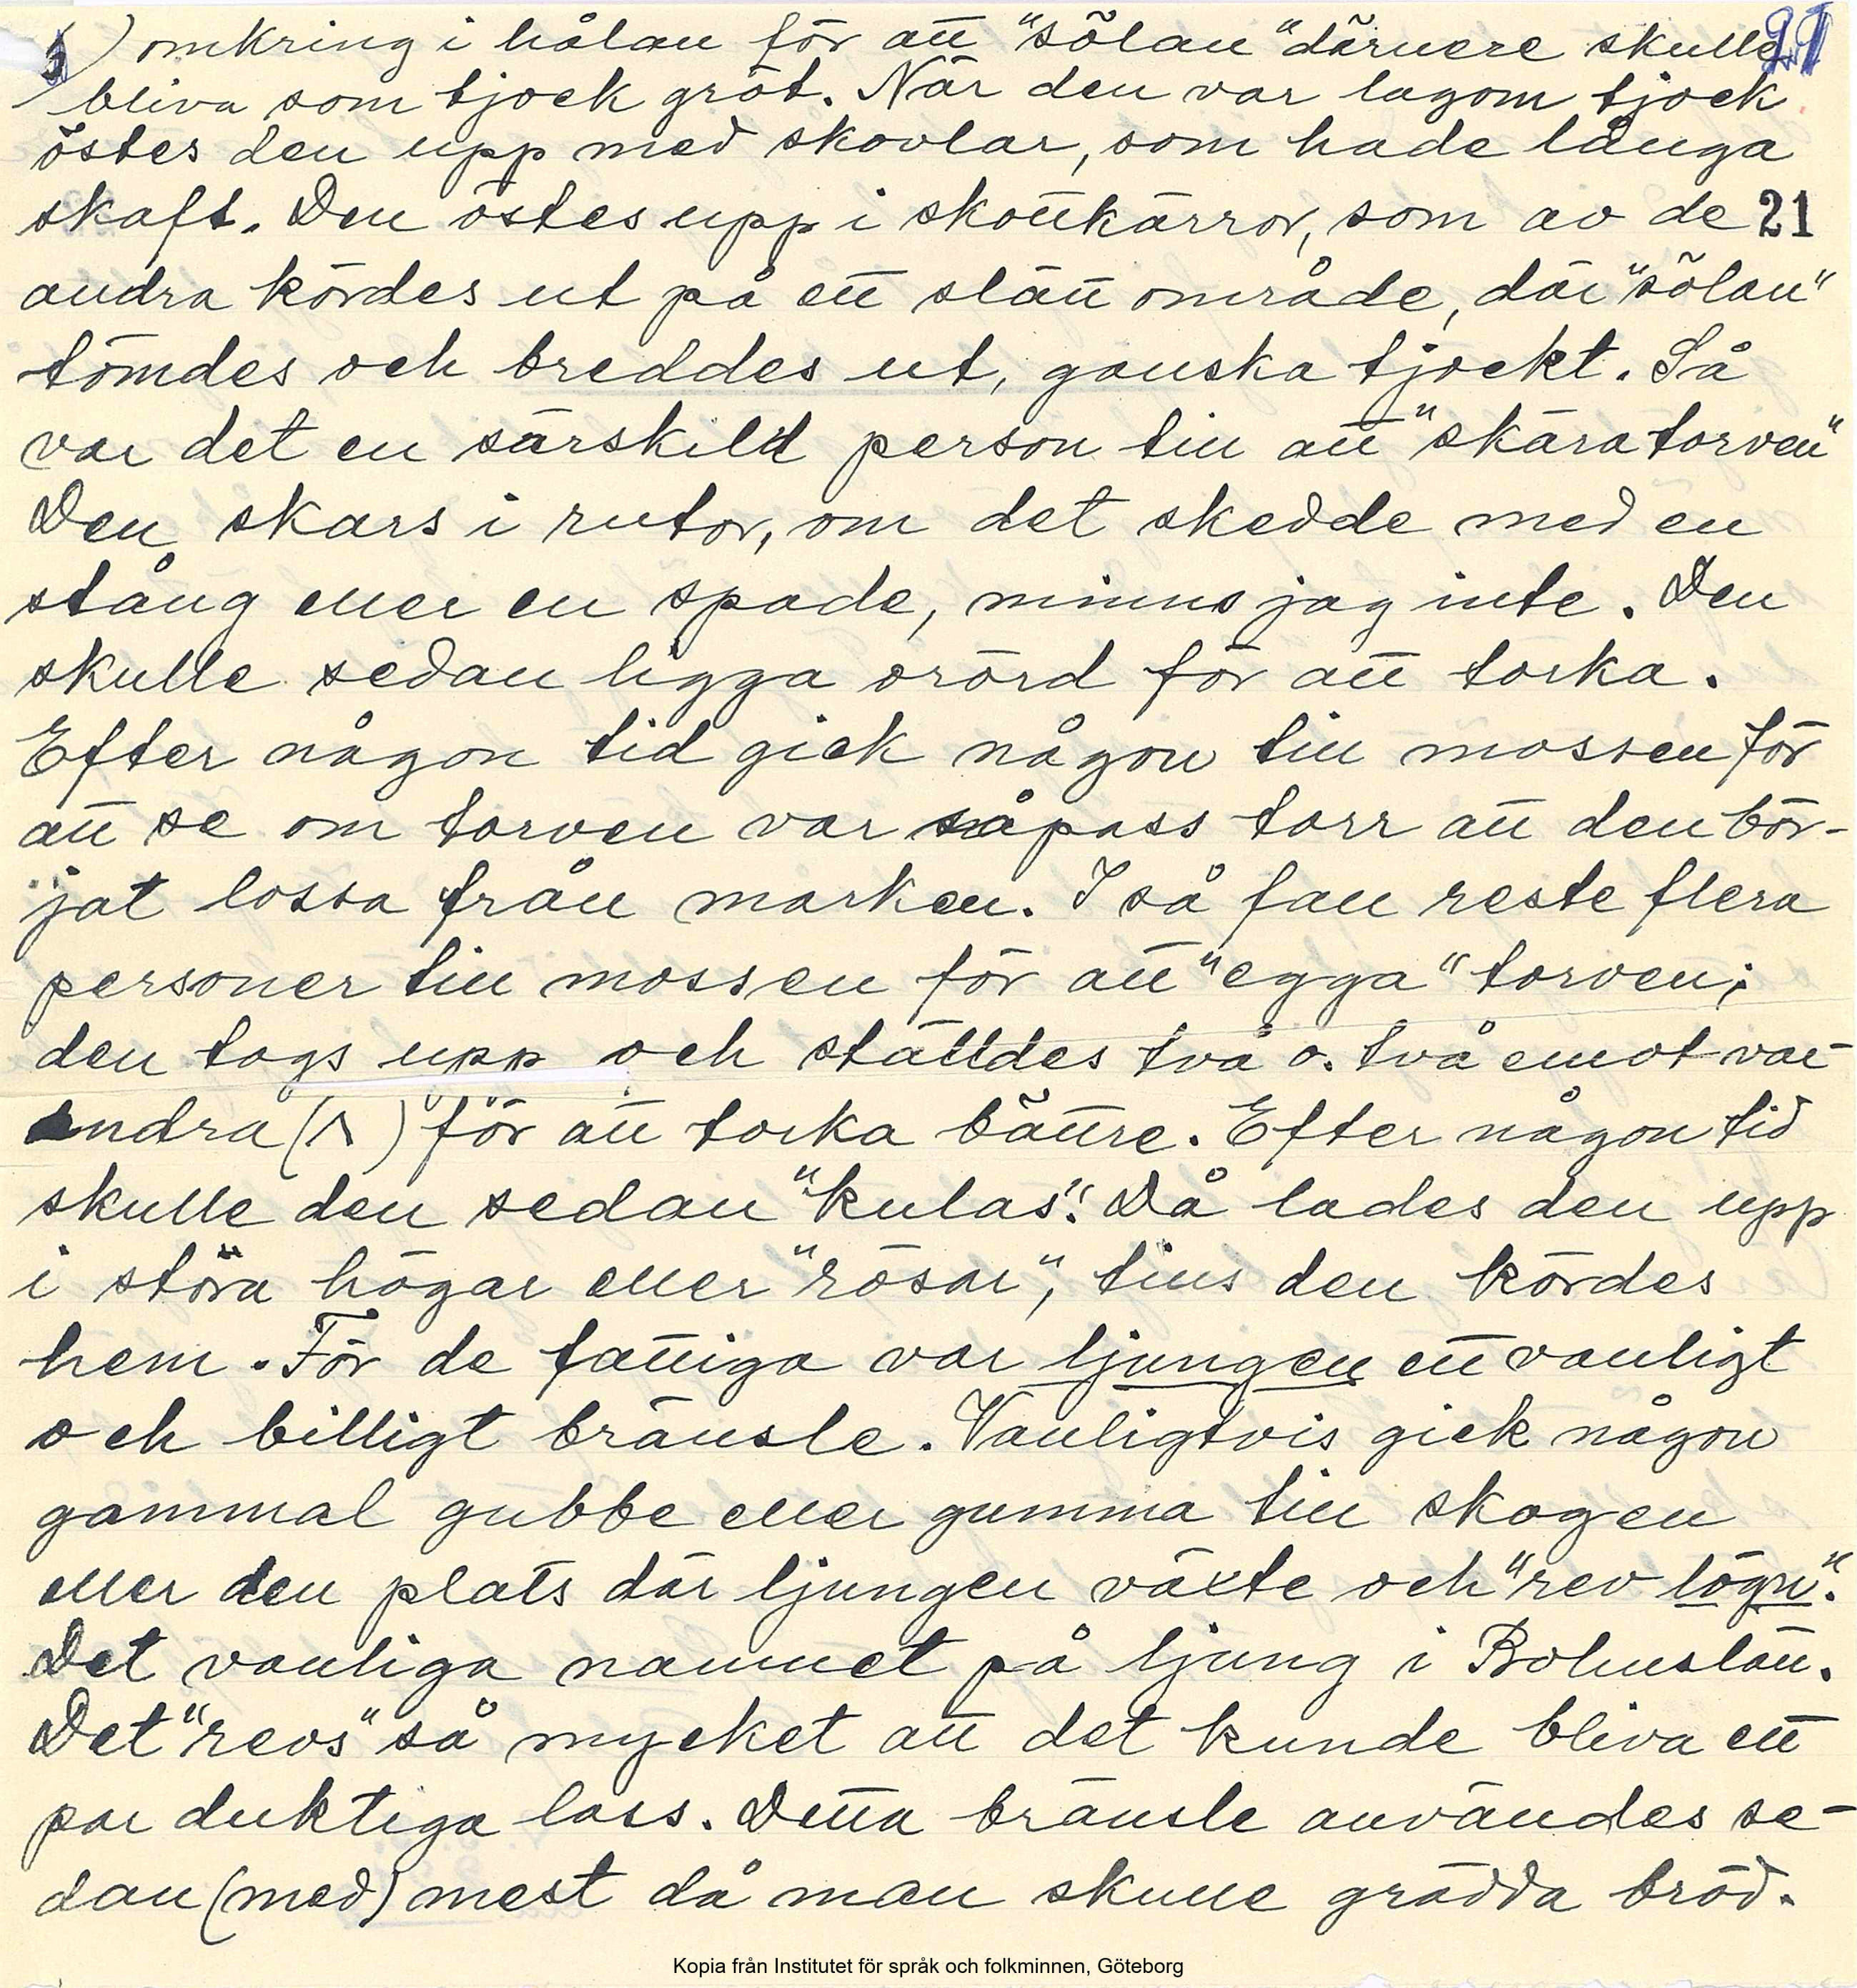 3) omkring i hålan för att "sölan" därnere skulle
bliva som tjock gröt. När den var lagom tjock
östes den upp med skovlar, som hade långa
skaft. Den östes upp i skottkärror, som av de 21
andra kördes ut på ett slätt område, där "sölan"
tömdes och breddes ut, ganska tjockt. Så
var det en särskild person till att "skära torven"
Den skars i rutor, om det skedde med en
stång eller en spade, minns jag inte. Den
skulle sedan ligga orörd för att torka.
Efter någon tid gick någon till mossen för
att se om torven var såpass torr att den bör-
jat lossa från marken. I så fall reste flera
personer till mossen för att "egga" torven;
den togs upp och ställdes två o. två emot var-
andra (Λ) för att torka bättre. Efter någon tid
skulle den sedan "kulas". Då lades den upp
i stora högar eller "rösar", tills den kördes
hem. För de fattiga var ljungen ett vanligt
och billigt bränsle. Vanligtvis gick någon
gammal gubbe eller gumma till skogen
eller den plats där ljungen växte och "rev lögn".
Det vanliga namnet på ljung i Bohuslän.
Det "revs" så mycket att det kunde bliva ett
par duktiga lass. Detta bränsle användes se-
dan (med) mest då man skulle grädda bröd.
Kopia från Institutet för språk och folkminnen, Göteborg